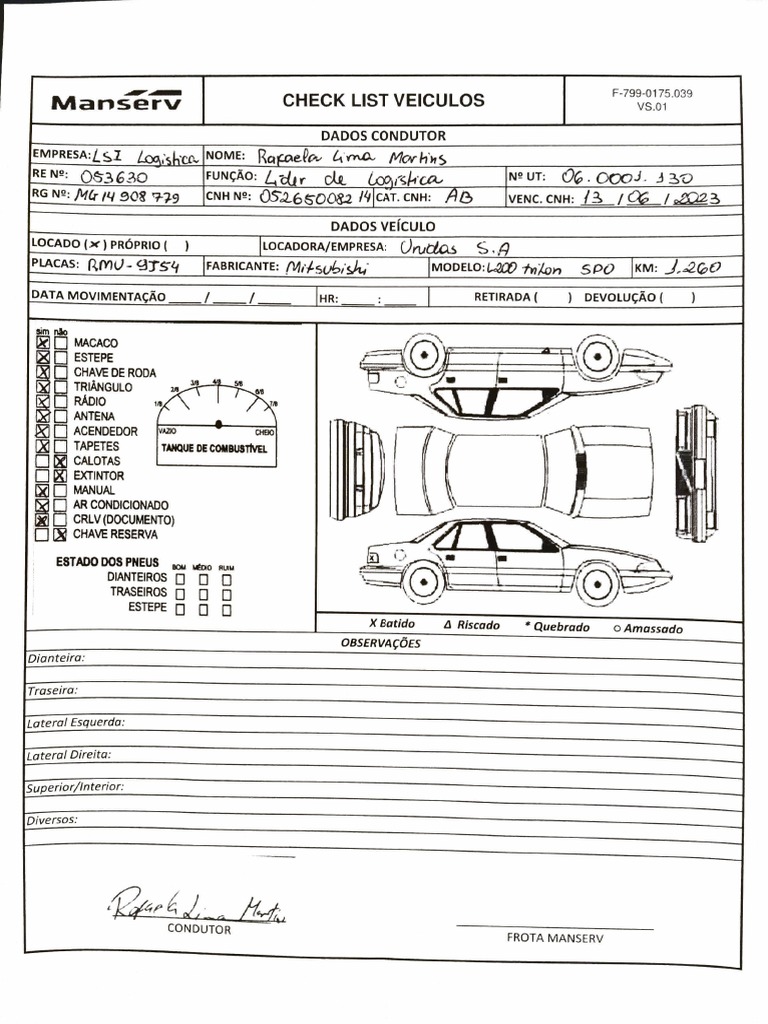 Manserv
CHECK LIST VEICULOS
F-799-0175.039
VS.01
DADOS CONDUTOR
EMPRESA: LSI Logística NOME: Rafaela Lima Martins
RE Nº: 053630 FUNÇÃO: Líder de Logística Nº UT: 06.0001.130
RG Nº: MG14 908 779 CNH Nº: 05265008214 CAT. CNH: AB VENC. CNH: 13 / 06 / 2023
DADOS VEÍCULO
LOCADO ( x ) PRÓPRIO ( ) LOCADORA/EMPRESA: Unidas S.A
PLACAS: RMU-9J54 FABRICANTE: Mitsubishi MODELO: L200 triton SPO KM: 1.260
DATA MOVIMENTAÇÃO ____ / ____ / ____ HR: ____ : ____ RETIRADA ( ) DEVOLUÇÃO ( )
sim não
X MACACO
X ESTEPE
X CHAVE DE RODA
X TRIÂNGULO
X RÁDIO
X ANTENA
X ACENDEDOR
X TAPETES
X CALOTAS
X EXTINTOR
X MANUAL
X AR CONDICIONADO
X CRLV (DOCUMENTO)
X CHAVE RESERVA
1/8 2/8 3/8 4/8 5/8 6/8 7/8
VAZIO CHEIO
TANQUE DE COMBUSTÍVEL
ESTADO DOS PNEUS BOM MÉDIO RUIM
DIANTEIROS
TRASEIROS
ESTEPE
X Batido Δ Riscado * Quebrado ○ Amassado
OBSERVAÇÕES
Dianteira:
Traseira:
Lateral Esquerda:
Lateral Direita:
Superior/Interior:
Diversos:
Rafaela Lima Martins
CONDUTOR
FROTA MANSERV